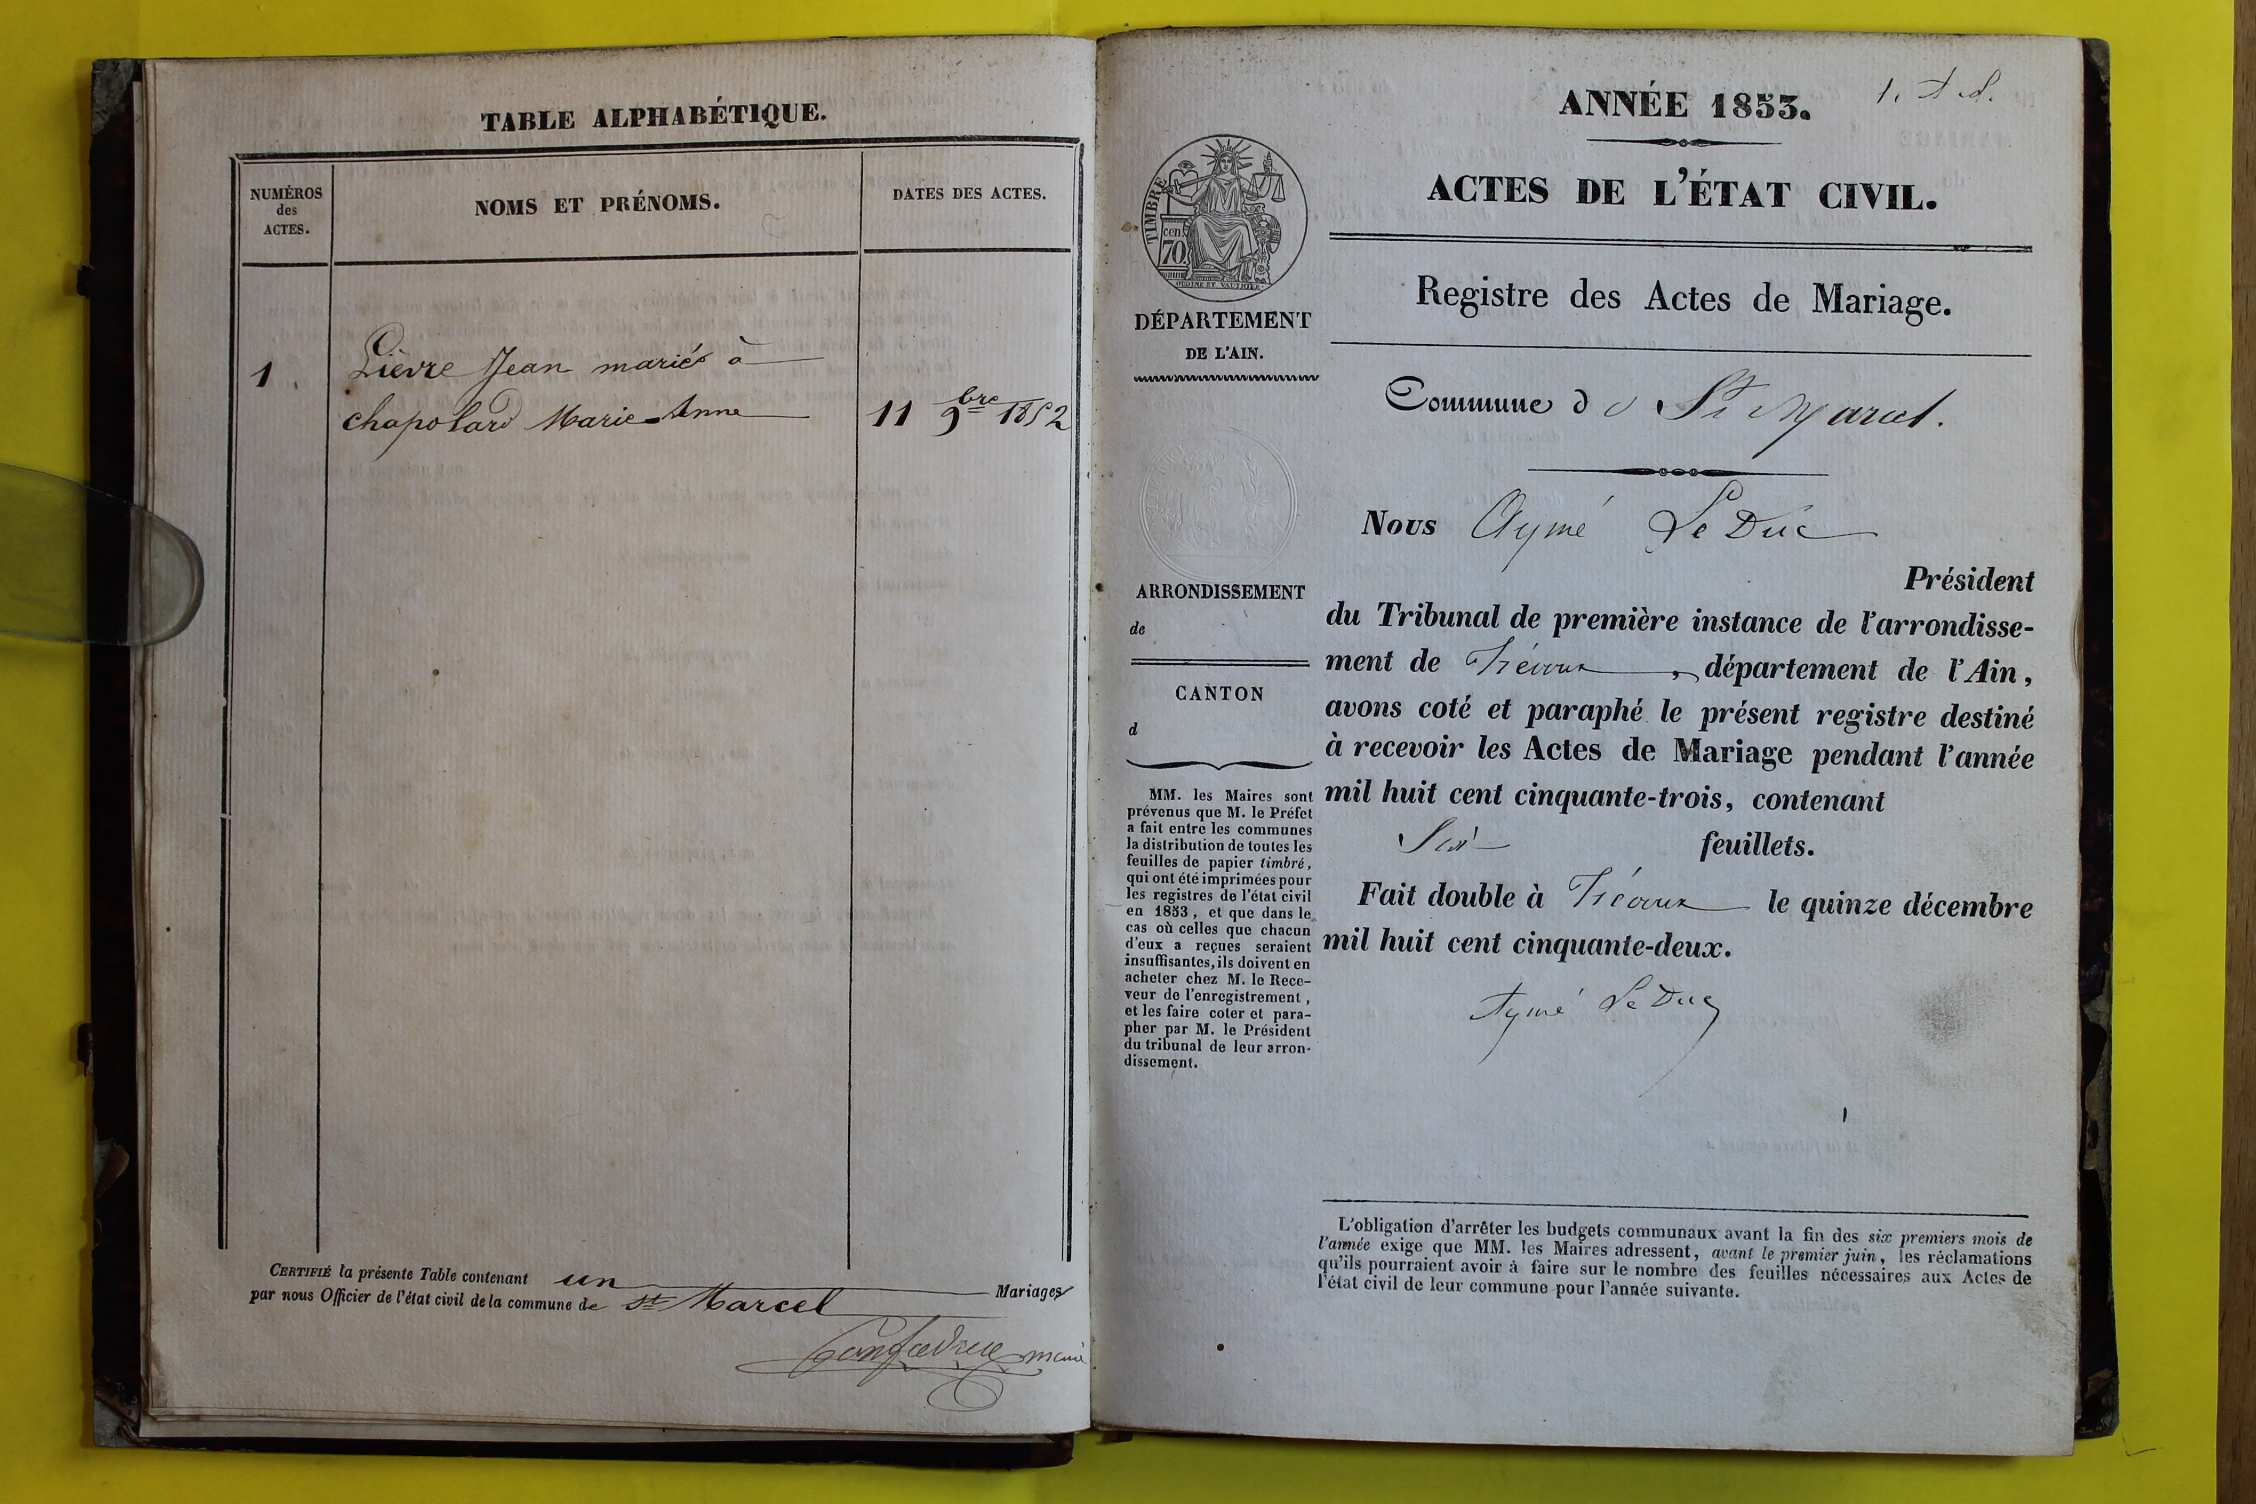 TABLE ALPHABÉTIQUE.
NUMÉROS
des
ACTES.
NOMS ET PRÉNOMS.
DATES DES ACTES.
1
Lièvre Jean mariés à
chapolard Marie-Anne
11 9bre 1852
CERTIFIÉ la présente Table contenant un Mariages
par nous Officier de l'état civil de la commune de St Marcel
maire
1.
ANNÉE 1853.
ACTES DE L'ÉTAT CIVIL.
TIMBRE
cen.
70
OUDINÉ ET VAUTHIER
DÉPARTEMENT
DE L'AIN.
ARRONDISSEMENT
de
CANTON
d
MM. les Maires sont
prévenus que M. le Préfet
a fait entre les communes
la distribution de toutes les
feuilles de papier timbré,
qui ont été imprimées pour
les registres de l'état civil
en 1853, et que dans le
cas où celles que chacun
d'eux a reçues seraient
insuffisantes, ils doivent en
acheter chez M. le Rece-
veur de l'enregistrement,
et les faire coter et para-
pher par M. le Président
du tribunal de leur arron-
dissement.
Registre des Actes de Mariage.
Commune de St Marcel.
Nous Aymé Le Duc
Président
du Tribunal de première instance de l'arrondisse-
ment de Trévoux, département de l'Ain,
avons coté et paraphé le présent registre destiné
à recevoir les Actes de Mariage pendant l'année
mil huit cent cinquante-trois, contenant
Six feuillets.
Fait double à Trévoux le quinze décembre
mil huit cent cinquante-deux.
Aymé Le Duc
L'obligation d'arrêter les budgets communaux avant la fin des six premiers mois de
l'année exige que MM. les Maires adressent, avant le premier juin, les réclamations
qu'ils pourraient avoir à faire sur le nombre des feuilles nécessaires aux Actes de
l'état civil de leur commune pour l'année suivante.